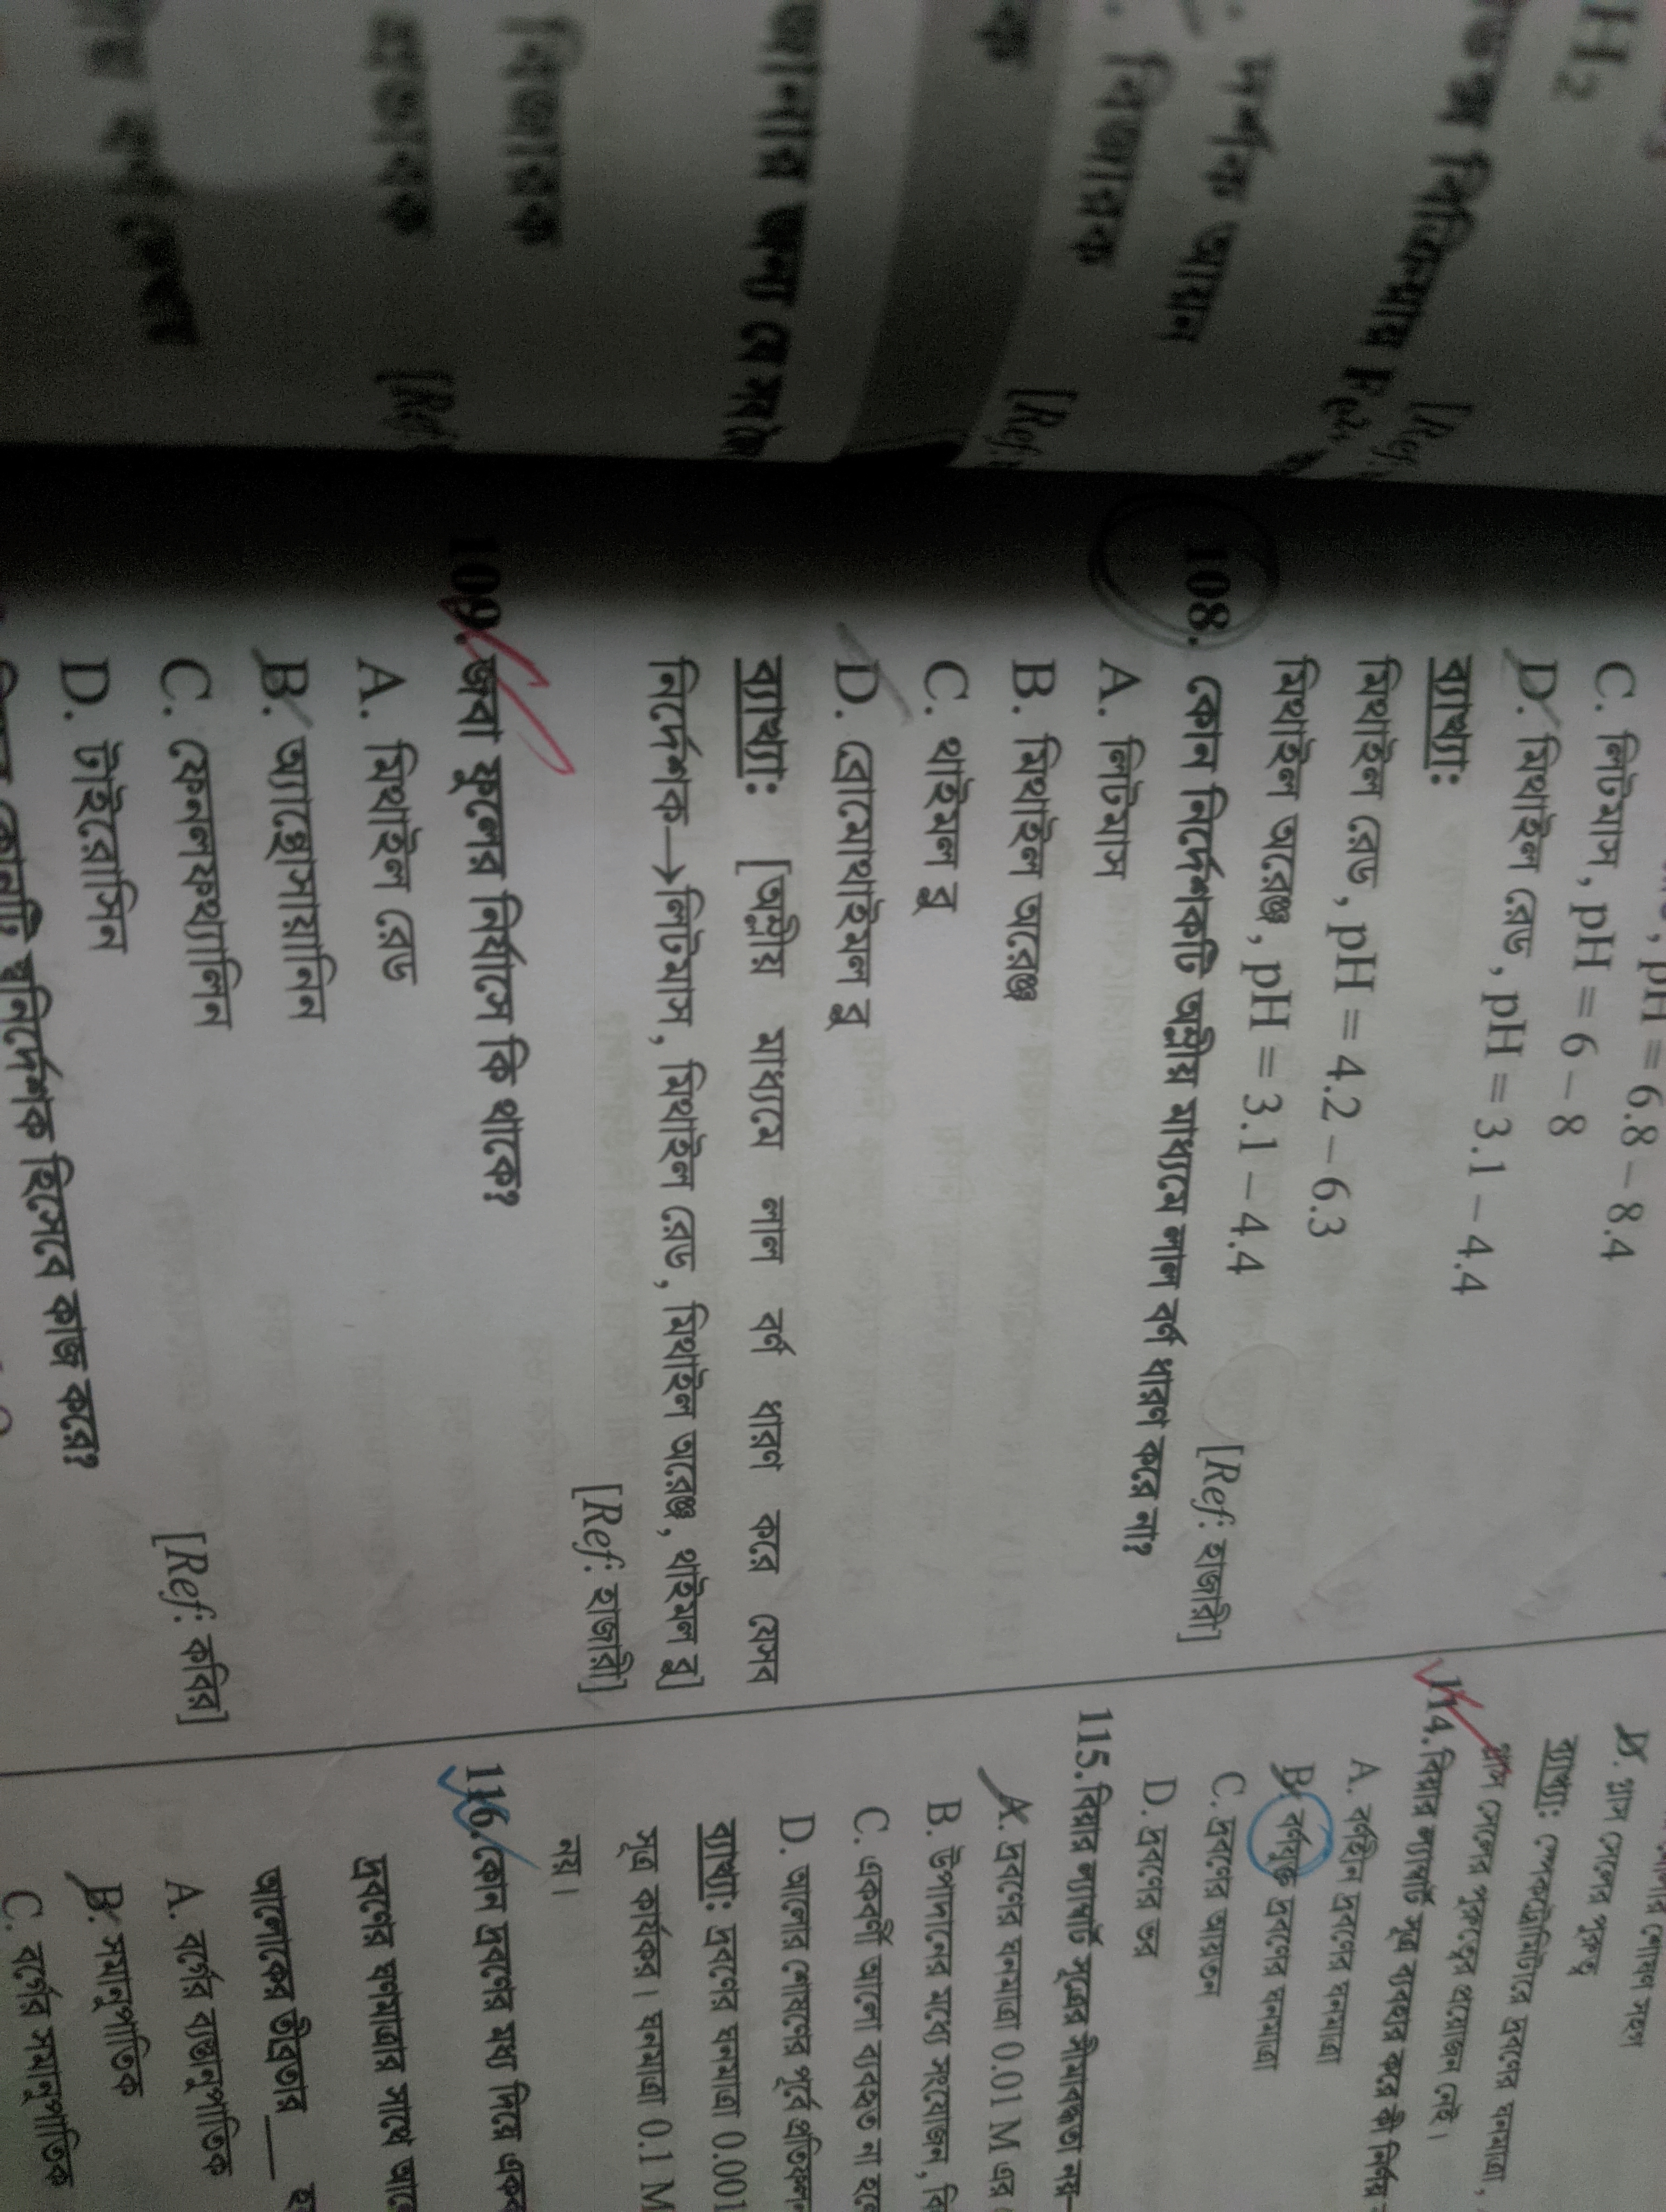 H₂
দর্শক আয়ন
বিজারক
[Ref:
জানার জন্য যে সব
বিজারক
প্রভাবক
[Ref:
pH = 6.8 – 8.4
C. লিটমাস, pH = 6 – 8
D. মিথাইল রেড, pH = 3.1 – 4.4
ব্যাখ্যা:
মিথাইল রেড, pH = 4.2 – 6.3
মিথাইল অরেঞ্জ, pH = 3.1 – 4.4
[Ref: হাজারী]
108. কোন নির্দেশকটি অম্লীয় মাধ্যমে লাল বর্ণ ধারণ করে না?
A. লিটমাস
B. মিথাইল অরেঞ্জ
C. থাইমল ব্লু
D. ব্রোমোথাইমল ব্লু
ব্যাখ্যা: [অম্লীয় মাধ্যমে লাল বর্ণ ধারণ করে যেসব
নির্দেশক→লিটমাস, মিথাইল রেড, মিথাইল অরেঞ্জ, থাইমল ব্লু]
[Ref: হাজারী]
109. জবা ফুলের নির্যাসে কি থাকে?
A. মিথাইল রেড
B. অ্যান্থোসায়ানিন
C. ফেনলফথ্যালিন
D. টাইরোসিন
[Ref: কবির]
কোনটি স্বনির্দেশক হিসেবে কাজ করে?
D. গ্লাস সেলের পুরুত্ব
ব্যাখ্যা: স্পেকট্রোমিটারে দ্রবণের ঘনমাত্রা,
গ্লাস সেলের পুরুত্বের প্রয়োজন নেই।
114. বিয়ার ল্যাম্বার্ট সূত্র ব্যবহার করে কী নির্ণয়
A. বর্ণহীন দ্রবণের ঘনমাত্রা
B. বর্ণযুক্ত দ্রবণের ঘনমাত্রা
C. দ্রবণের আয়তন
D. দ্রবণের ভর
115. বিয়ার ল্যাম্বার্ট সূত্রের সীমাবদ্ধতা নয়–
A. দ্রবণের ঘনমাত্রা 0.01 M এর
B. উপাদানের মধ্যে সংযোজন, বি
C. একবর্ণী আলো ব্যবহৃত না হলে
D. আলোর শোষণের পূর্বে প্রতিফলন
ব্যাখ্যা: দ্রবণের ঘনমাত্রা 0.001
সূত্র কার্যকর। ঘনমাত্রা 0.1 M
নয়।
116. কোন দ্রবণের মধ্য দিয়ে একব
দ্রবণের ঘণমাত্রার সাথে আপে
আলোকের তীব্রতার ___ হ
A. বর্গের ব্যস্তানুপাতিক
B. সমানুপাতিক
C. বর্গের সমানুপাতিক